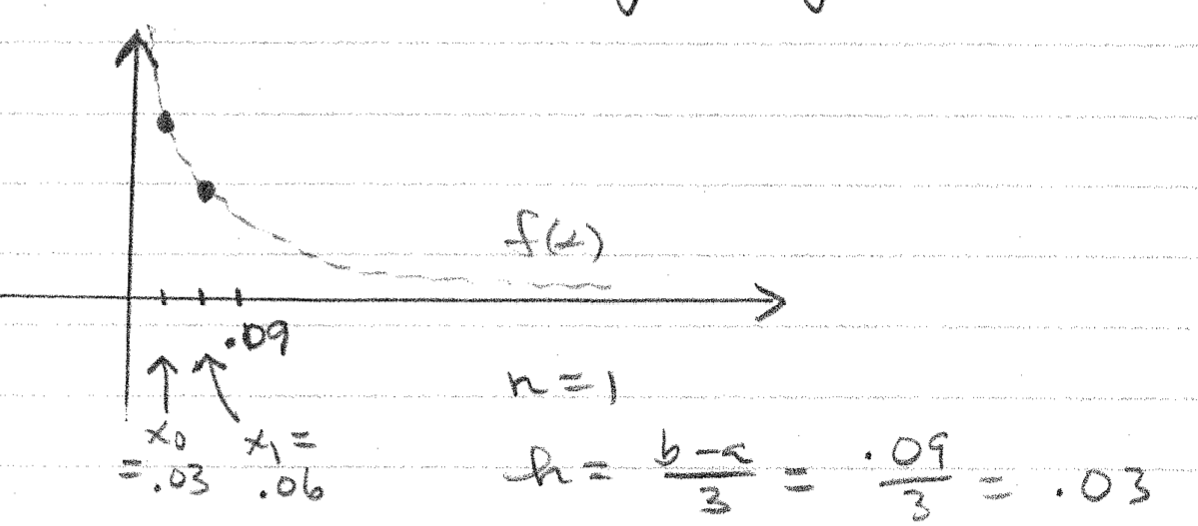 f(x)
.09
n = 1
x₀ = .03
x₁ = .06
h = (b-a)/3 = .09/3 = .03